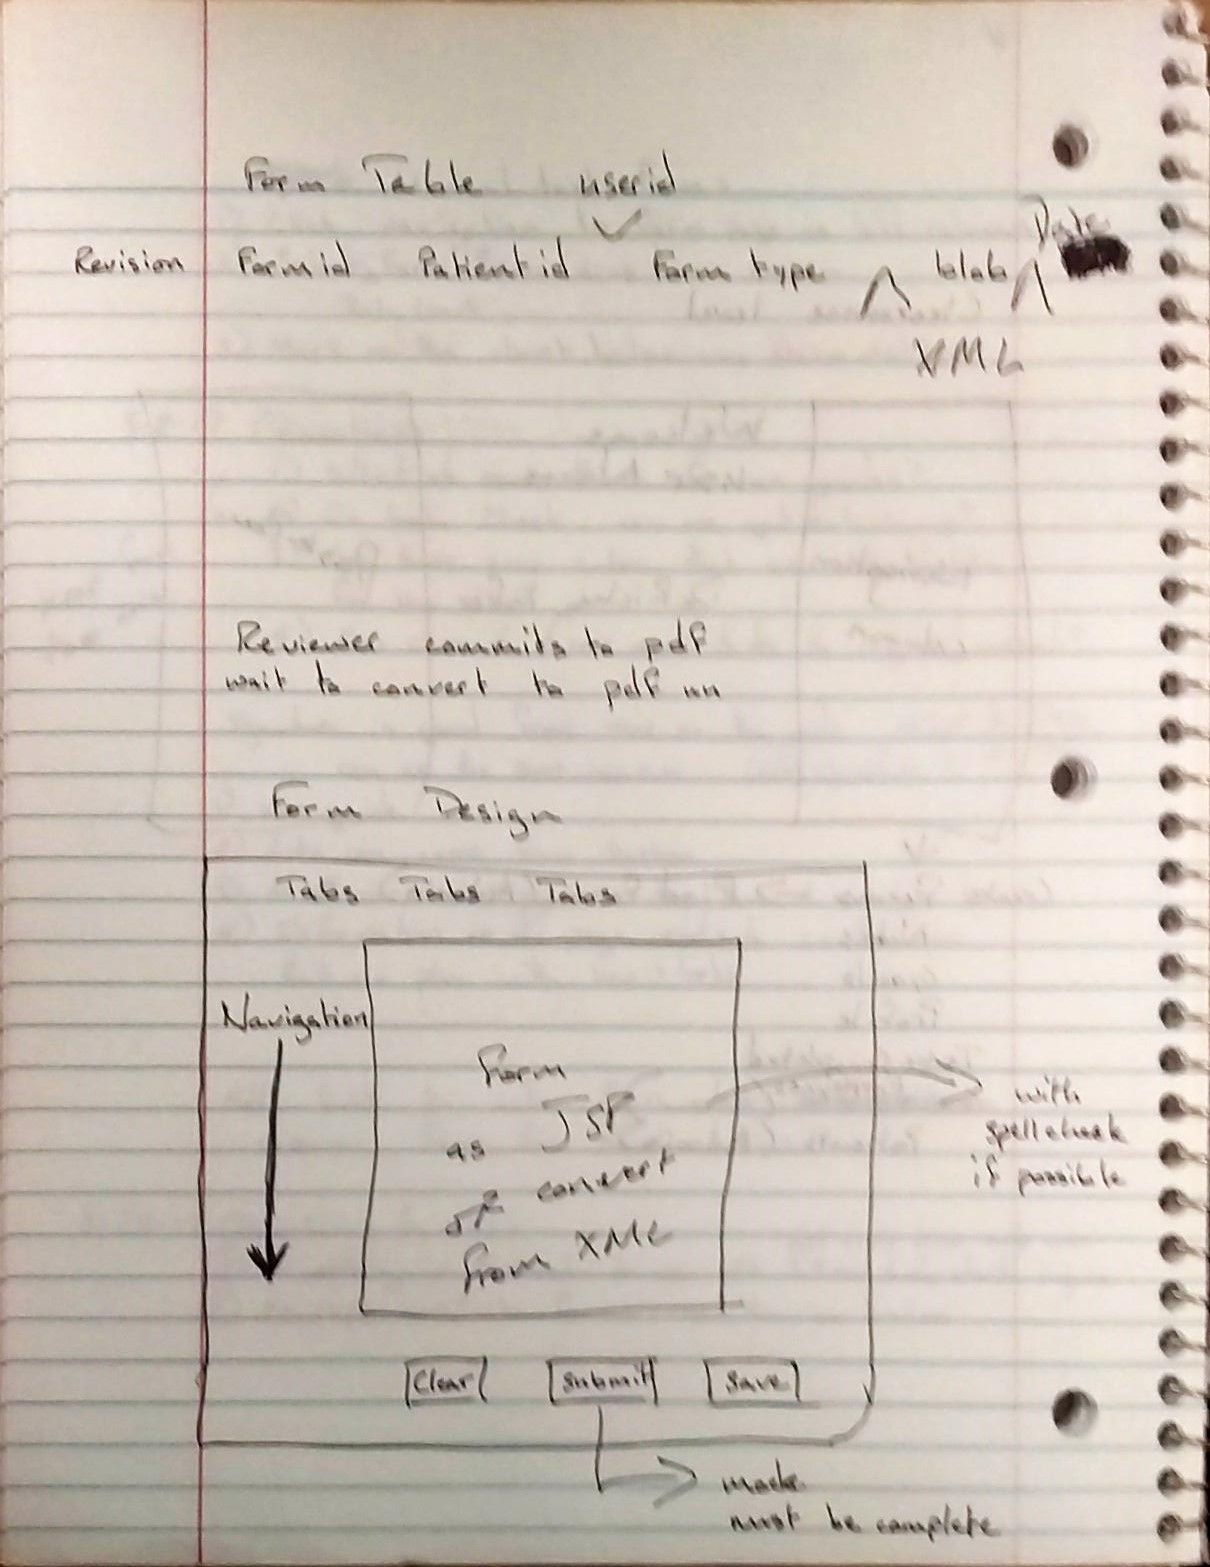 Form Table userid
Revision Formid Patientid Form type blob Date
XML
Reviewer commits to pdf
wait to convert to pdf
Form Design
Tabs Tabs Tabs
Navigation
Form
as JSP
convert
from XML
with
spellcheck
if possible
Clear Submit Save
must be complete